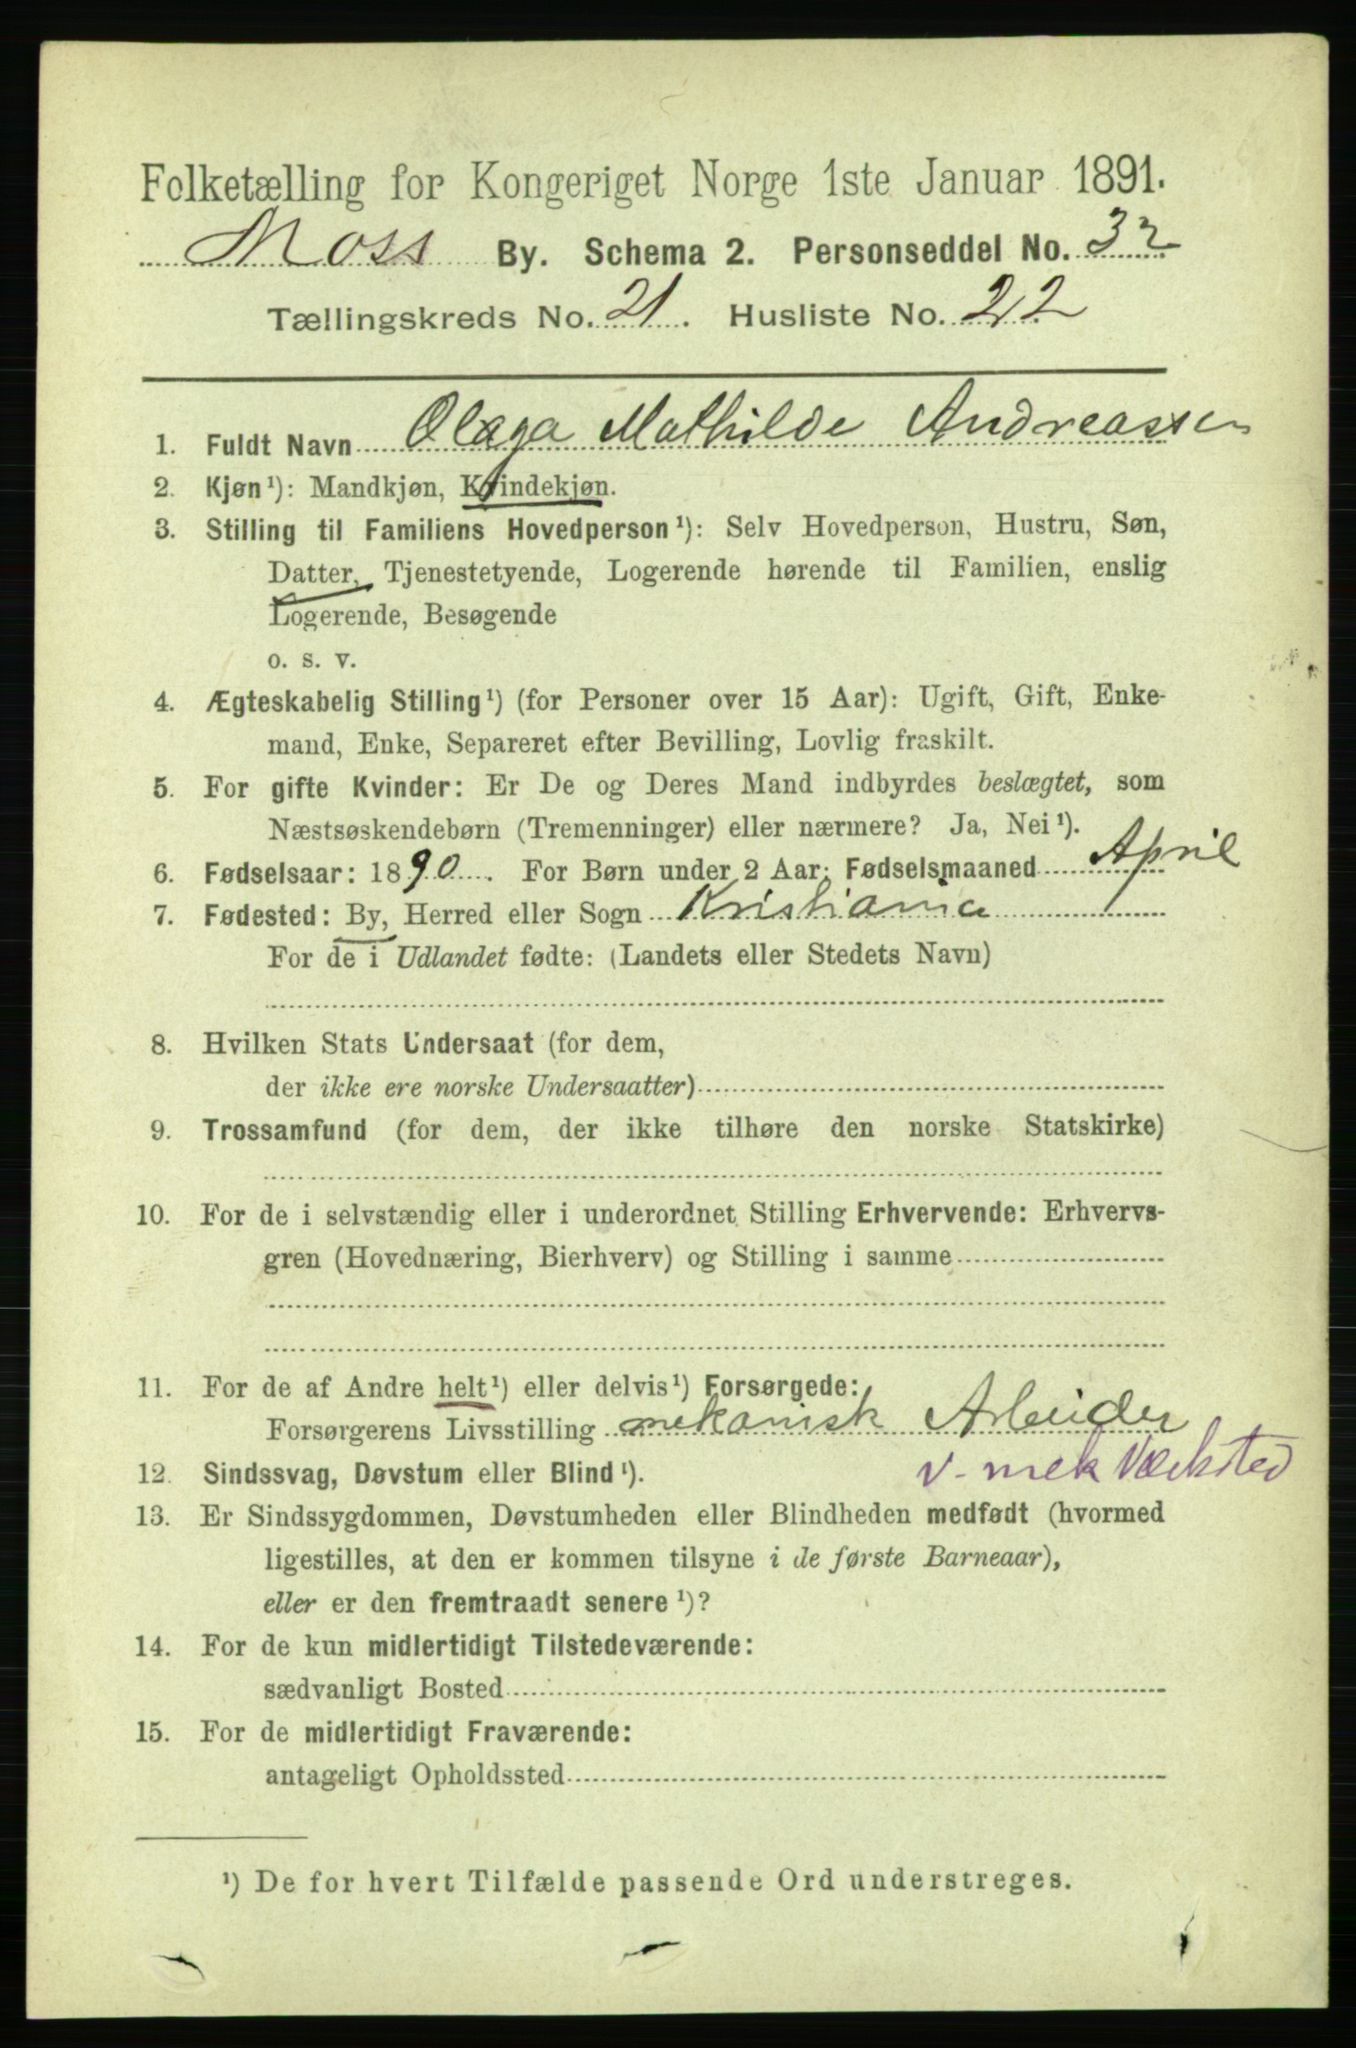 Folketælling for Kongeriget Norge 1ste Januar 1891.
Moss By. Schema 2. Personseddel No. 32
Tællingskreds No. 21. Husliste No. 22
1. Fuldt Navn Olaga Mathilde Andreassen
2. Kjøn¹): Mandkjøn, Kvindekjøn.
3. Stilling til Familiens Hovedperson¹): Selv Hovedperson, Hustru, Søn,
Datter, Tjenestetyende, Logerende hørende til Familien, enslig
Logerende, Besøgende
o. s. v.
4. Ægteskabelig Stilling¹) (for Personer over 15 Aar): Ugift, Gift, Enke-
mand, Enke, Separeret efter Bevilling, Lovlig fraskilt.
5. For gifte Kvinder: Er De og Deres Mand indbyrdes beslægtet, som
Næstsøskendebørn (Tremenninger) eller nærmere? Ja, Nei¹).
6. Fødselsaar: 1890. For Børn under 2 Aar: Fødselsmaaned April
7. Fødested: By, Herred eller Sogn Kristiania
For de i Udlandet fødte: (Landets eller Stedets Navn)
8. Hvilken Stats Undersaat (for dem,
der ikke ere norske Undersaatter)
9. Trossamfund (for dem, der ikke tilhøre den norske Statskirke)
10. For de i selvstændig eller i underordnet Stilling Erhvervende: Erhvervs-
gren (Hovednæring, Bierhverv) og Stilling i samme
11. For de af Andre helt¹) eller delvis¹) Forsørgede:
Forsørgerens Livsstilling mekanisk Arbeider
v. mek Værksted
12. Sindssvag, Døvstum eller Blind¹).
13. Er Sindssygdommen, Døvstumheden eller Blindheden medfødt (hvormed
ligestilles, at den er kommen tilsyne i de første Barneaar),
eller er den fremtraadt senere¹)?
14. For de kun midlertidigt Tilstedeværende:
sædvanligt Bosted
15. For de midlertidigt Fraværende:
antageligt Opholdssted
¹) De for hvert Tilfælde passende Ord understreges.